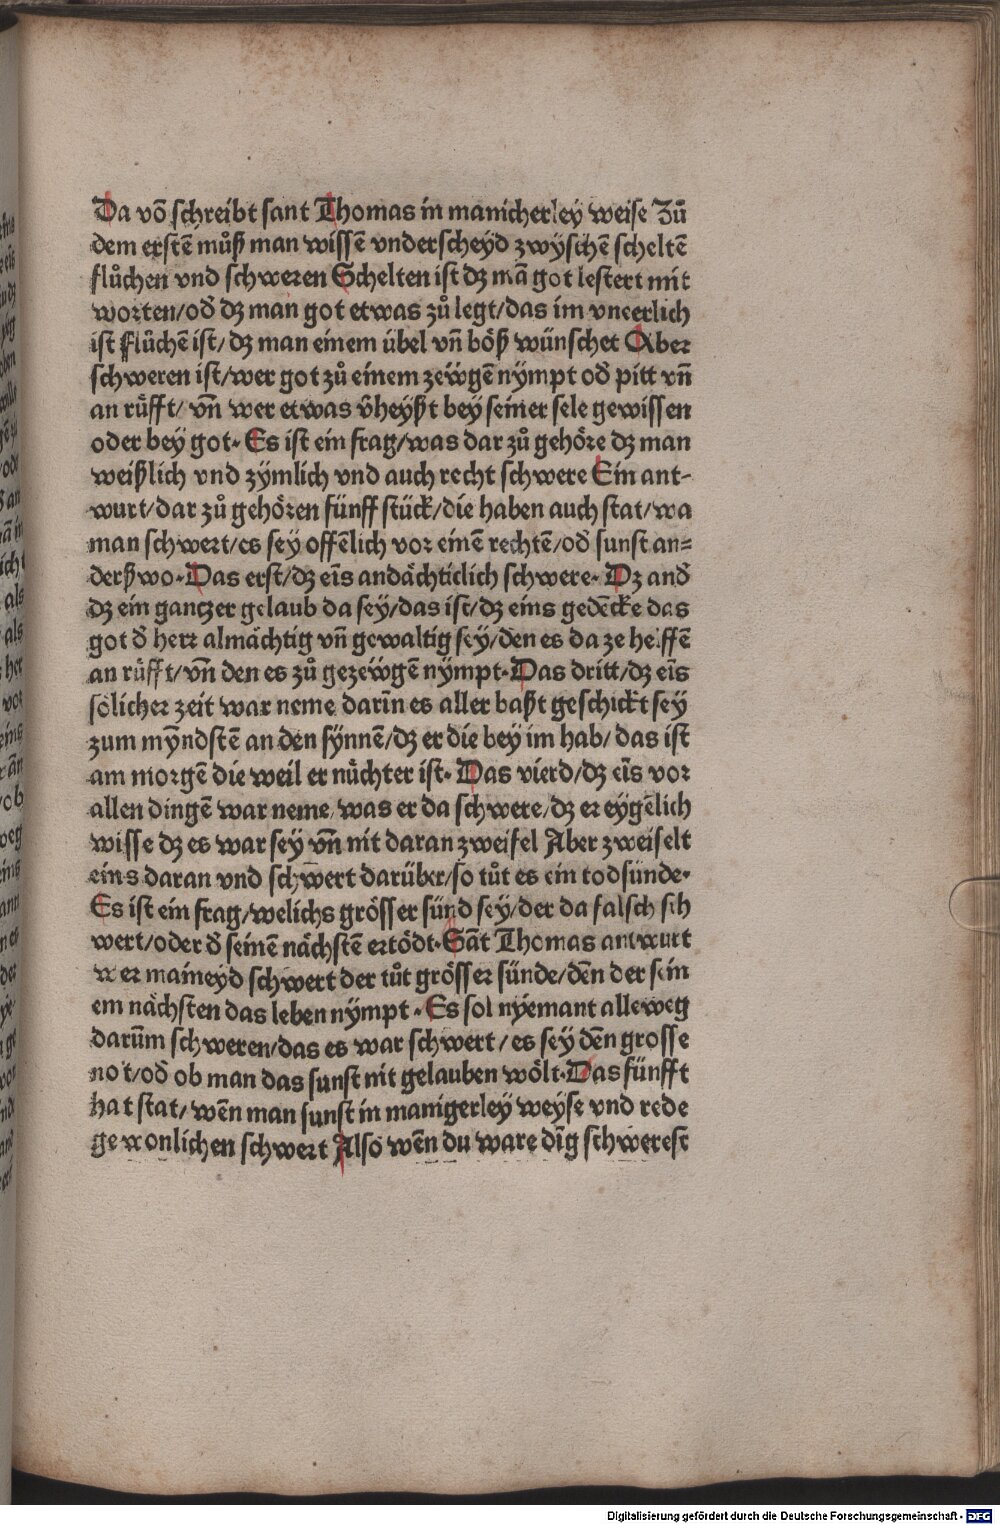 Da vō schreibt sant Thomas in manicherley weise Zů
dem erstē můß man wissē vnderscheyd zwyschē scheltē
flůchen vnd schweren Schelten ist dz mā got lestert mit
worten/od̄ dz man got etwas zů legt/das im vneerlich
ist Flůchē ist/dz man einem übel vn̄ böß wünschet Aber
schweren ist/wer got zů einem zeẅgē nympt od̄ pitt vn̄
an rüfft/vn̄ wer etwas v̄heyßt bey seiner sele gewissen
oder bey got. Es ist ein frag/was dar zů gehöre dz man
weißlich vnd zymlich vnd auch recht schwere Ein ant-
wurt/dar zů gehören fünff stück/die haben auch stat/wa
man schwert/es sey offēlich vor einē rechtē/od̄ sunst an=
derßwo. Das erst/dz eīs andächticlich schwere. Dz and̄
dz ein gantzer gelaub da sey/das ist/dz eins gedēcke das
got d̄ herr almächtig vn̄ gewaltig sey/den es da ze helffē
an rüfft/vn̄ den es zů gezeẅgē nympt. Das dritt/dz eīs
sölicher zeit war neme darīn es aller baßt geschickt sey
zum mȳndstē an den sȳnnē/dz er die bey im hab/das ist
am morgē die weil er nüchter ist. Das vierd/dz eīs vor
allen dingē war neme/was er da schwere/dz er eygēlich
wisse dz es war sey vn̄ nit daran zweifel Aber zweifelt
eins daran vnd schwert darüber/so tůt es ein todsünde.
Es ist ein frag/welichs grösser sünd sey/der da falsch sch
wert/oder d̄ seinē nächstē ertödt. Sāt Thomas antwurt
wer maineyd schwert der tůt grösser sünde/dēn der sein
em nächsten das leben nympt. Es sol nyemant alleweg
darūm schweren/das es war schwert/es sey dēn grosse
not/od̄ ob man das sunst nit gelauben wölt. Das fünfft
hat stat/wēn man sunst in manigerley weyse vnd rede
gewonlichen schwert Also wēn du ware dīg schwerest
Digitalisierung gefördert durch die Deutsche Forschungsgemeinschaft - DFG